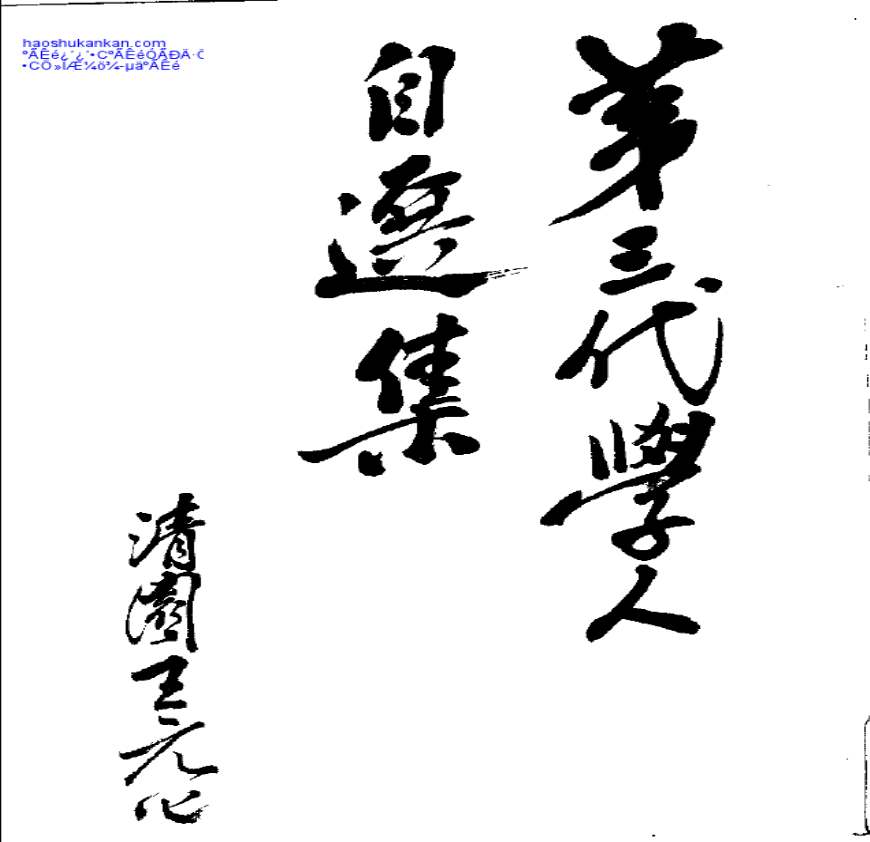 haoshukankan.com
ºÃÊé¿´¿´•CºÃÊéÓÃÐÄ·Ö
•CÖ»ÍÆ¼ö¾-µäºÃÊé
第三代學人
自選集
清園王元化